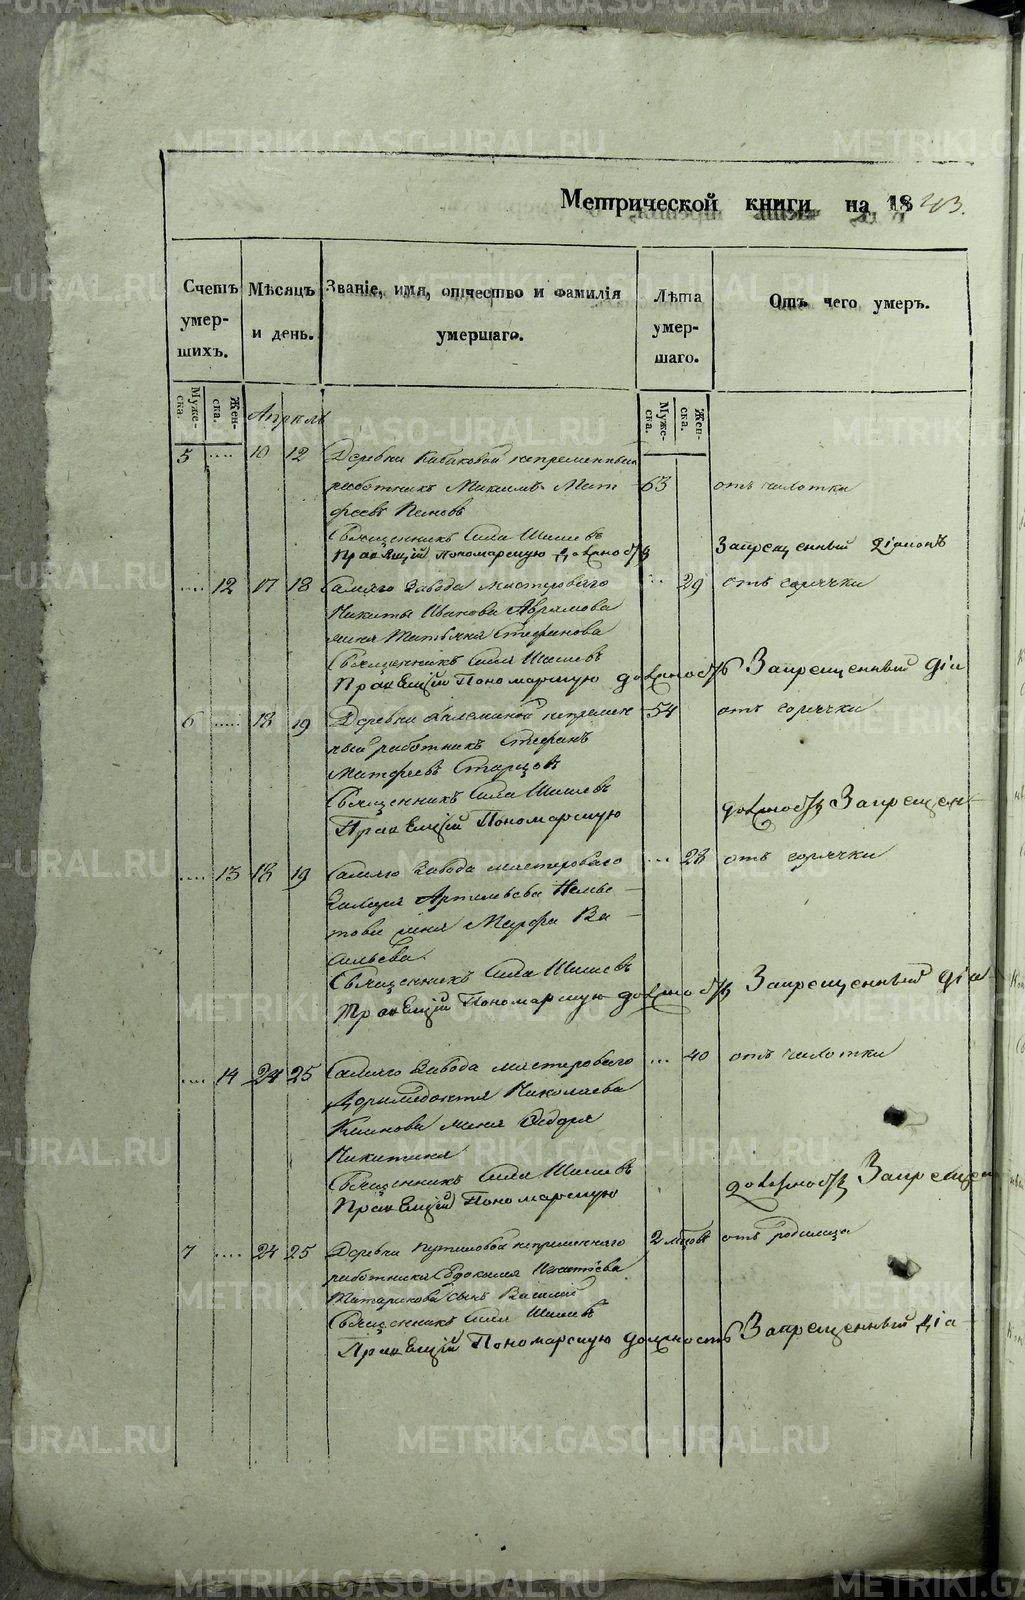 Метрической книги на 1843.
Счетъ умер- шихъ.
Мѣсяцъ и день.
Званіе, имя, отчество и фамилія умершаго.
Лѣта умер- шаго.
Отъ чего умеръ.
Муже- ска.
Жен- ска.
Муже- ска.
Жен- ска.
Апрель
5 .... 10 12 Деревни непременный
работникъ Максимъ Мат 63 отъ чахотки
феевъ Пановъ
Священникъ Сила Шишевъ
Правящій Пономарскую должность Запрещенный діаконъ
.... 12 17 18 Самаго Завода мастероваго ... 29 отъ горячки
Никиты Иванова Аврамова
жена Татьяна Стефанова
Священникъ Сила Шишевъ
Правящій Пономарскую должность Запрещенный діа
6 .... 18 19 Деревни непремен 54 отъ горячки
ный работникъ Стефанъ
Матфеевъ Старцов
Священникъ Сила Шишевъ
Правящій Пономарскую должность Запрещен
.... 13 18 19 Самаго Завода мастероваго ... 28 отъ горячки
Артемьева
жена Марфа Ва
сильева
Священникъ Сила Шишевъ
Правящій Пономарскую должность Запрещенный діа
.... 14 24 25 Самаго Завода мастероваго ... 40 отъ чахотки
Дормидонта Николаева
жена
Никитина
Священникъ Сила Шишевъ
Правящій Пономарскую должность Запрещен
7 .... 24 25 Деревни непременнаго 2 мѣсяц отъ родимца
работника Евдокима Игнатьева
сынъ Василій
Священникъ Сила Шишевъ
Правящій Пономарскую должность Запрещенный діа
METRIKI.GASO-URAL.RU